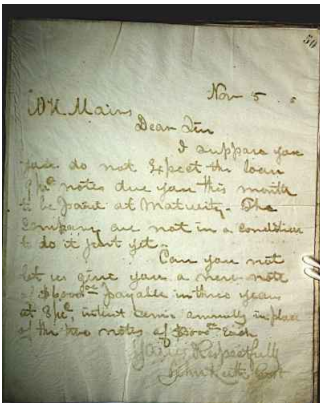 50
Nov 5
Mains
Dear Sir
I suppose you
you do not Expect the loan
notes due you this month
to be paid at maturity. The
Company are not in a condition
to do it just yet.
Can you not
let us give you a new note
of payable in three years
at semi annually in place
of the two notes of Each
Yours Respectfully
John